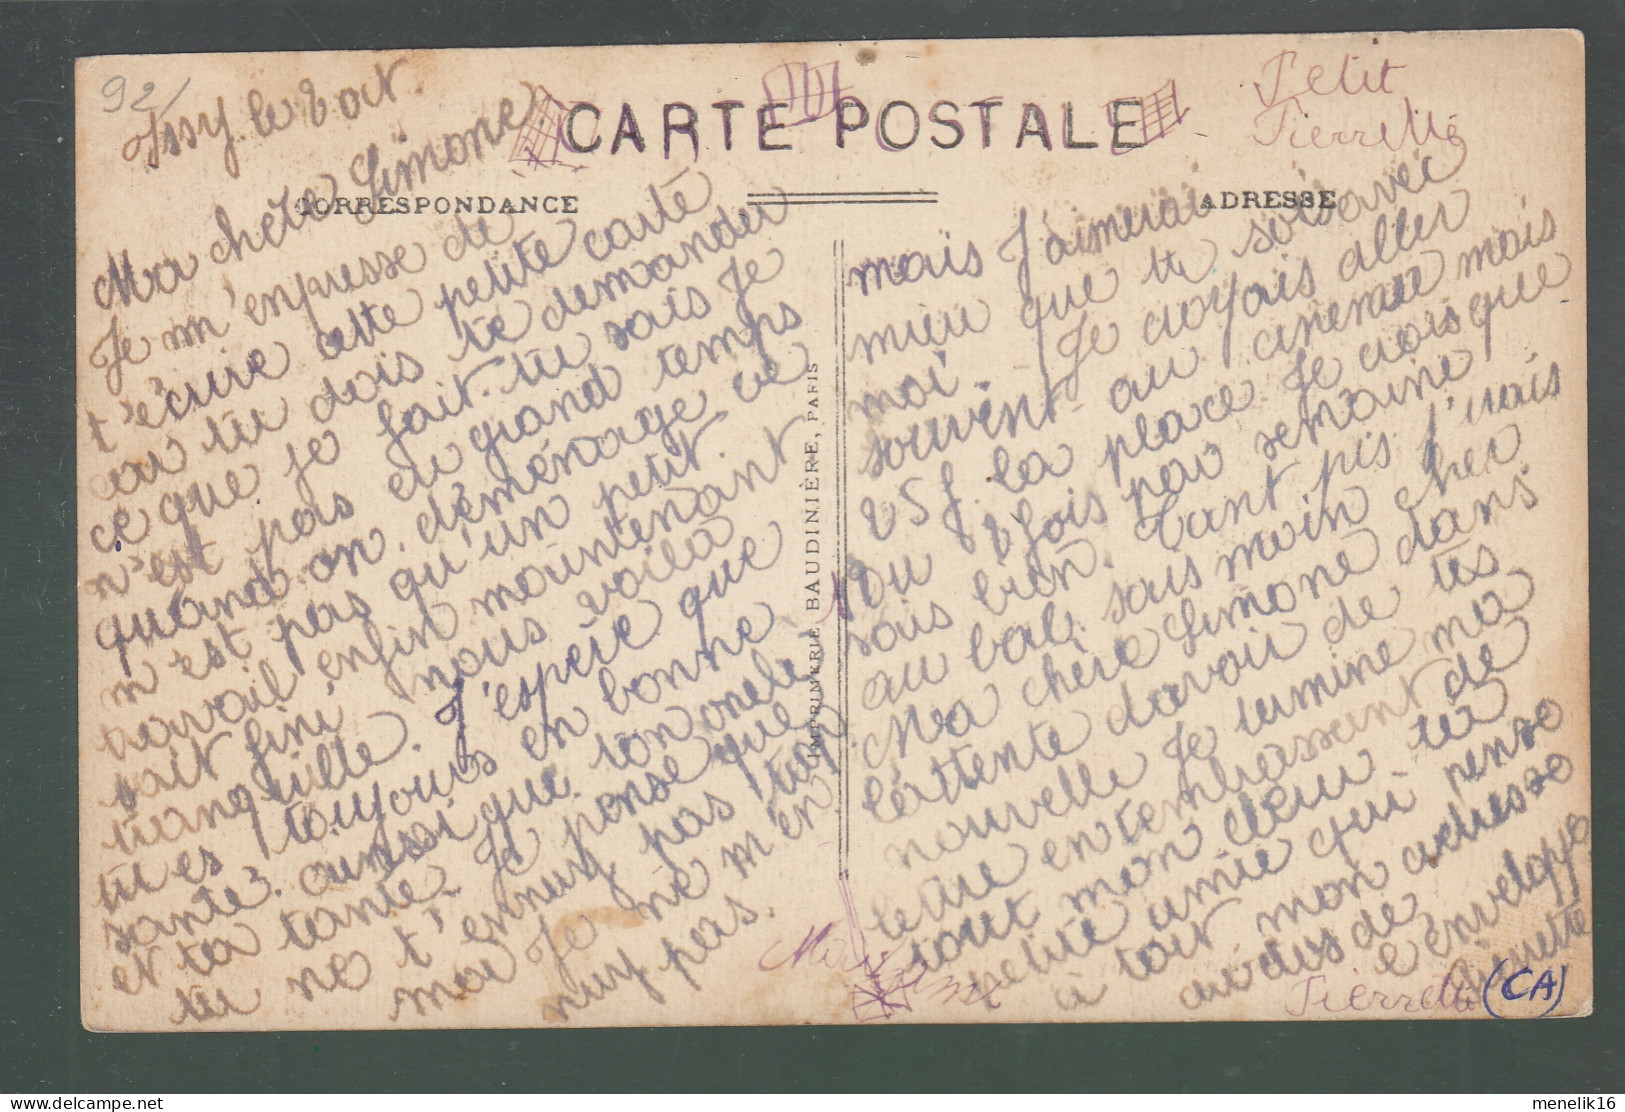 92/
Issy le 2 oct.
CARTE POSTALE
Petit
Pierrette
CORRESPONDANCE
ADRESSE
Ma chère Simone
Je m'enpresse de
t'écrire cette petite carte
car tu dois te demander
ce que je fait. tu sais Je
n'est pas du grand temps
quand on déménage ce
n'est pas qu'un petit
travail enfin maintenant
sait fini nous voila
tranquille. J'espere que
tu es toujours en bonne
sante. aussi que ton oncle
et ta tante. Je pense que
tu ne t'ennuy pas trop
moi Je ne m'en
nuy pas.
IMPRIMERIE BAUDINIÈRE, PARIS
mais J'aimerai
mieu que tu sois avec
moi. Je croyais aller
souvent au cinema mais
25f. la place Je crois que
ou 2 fois par semaine
sais bien. Tant pis J'irais
au bal, sais moin cher
Ma chère Simone dans
l'attente d'avoir de tes
nouvelle Je termine ma
lettre en tembrassant de
tout mon cœur ta
petite amie qui pense
à toir mon adresse
au dis de l'enveloppe
Pierrette
Pierrette
(CA)
menelik16